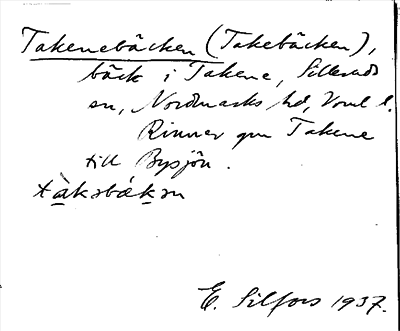 Takenebäcken (Takebäcken),
bäck i Takene, Silleruds
sn, Nordmarks hd, Vrml l.
Rinner gm Takene
till Bysjön.
tàkəbǽkən
E. Silfors 1937.